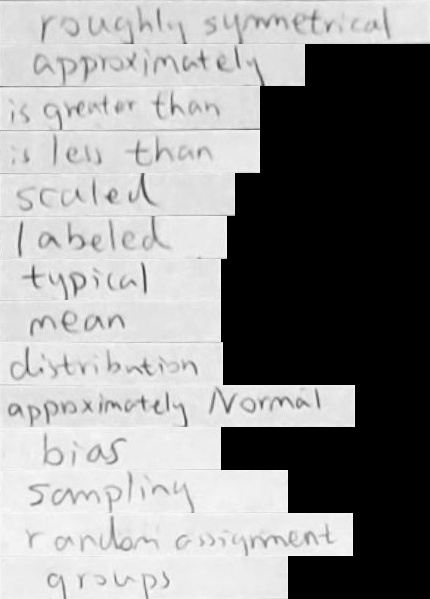 roughly symmetrical
approximately
is greater than
is less than
scaled
labeled
typical
mean
distribution
approximately Normal
bias
sampling
random assignment
groups